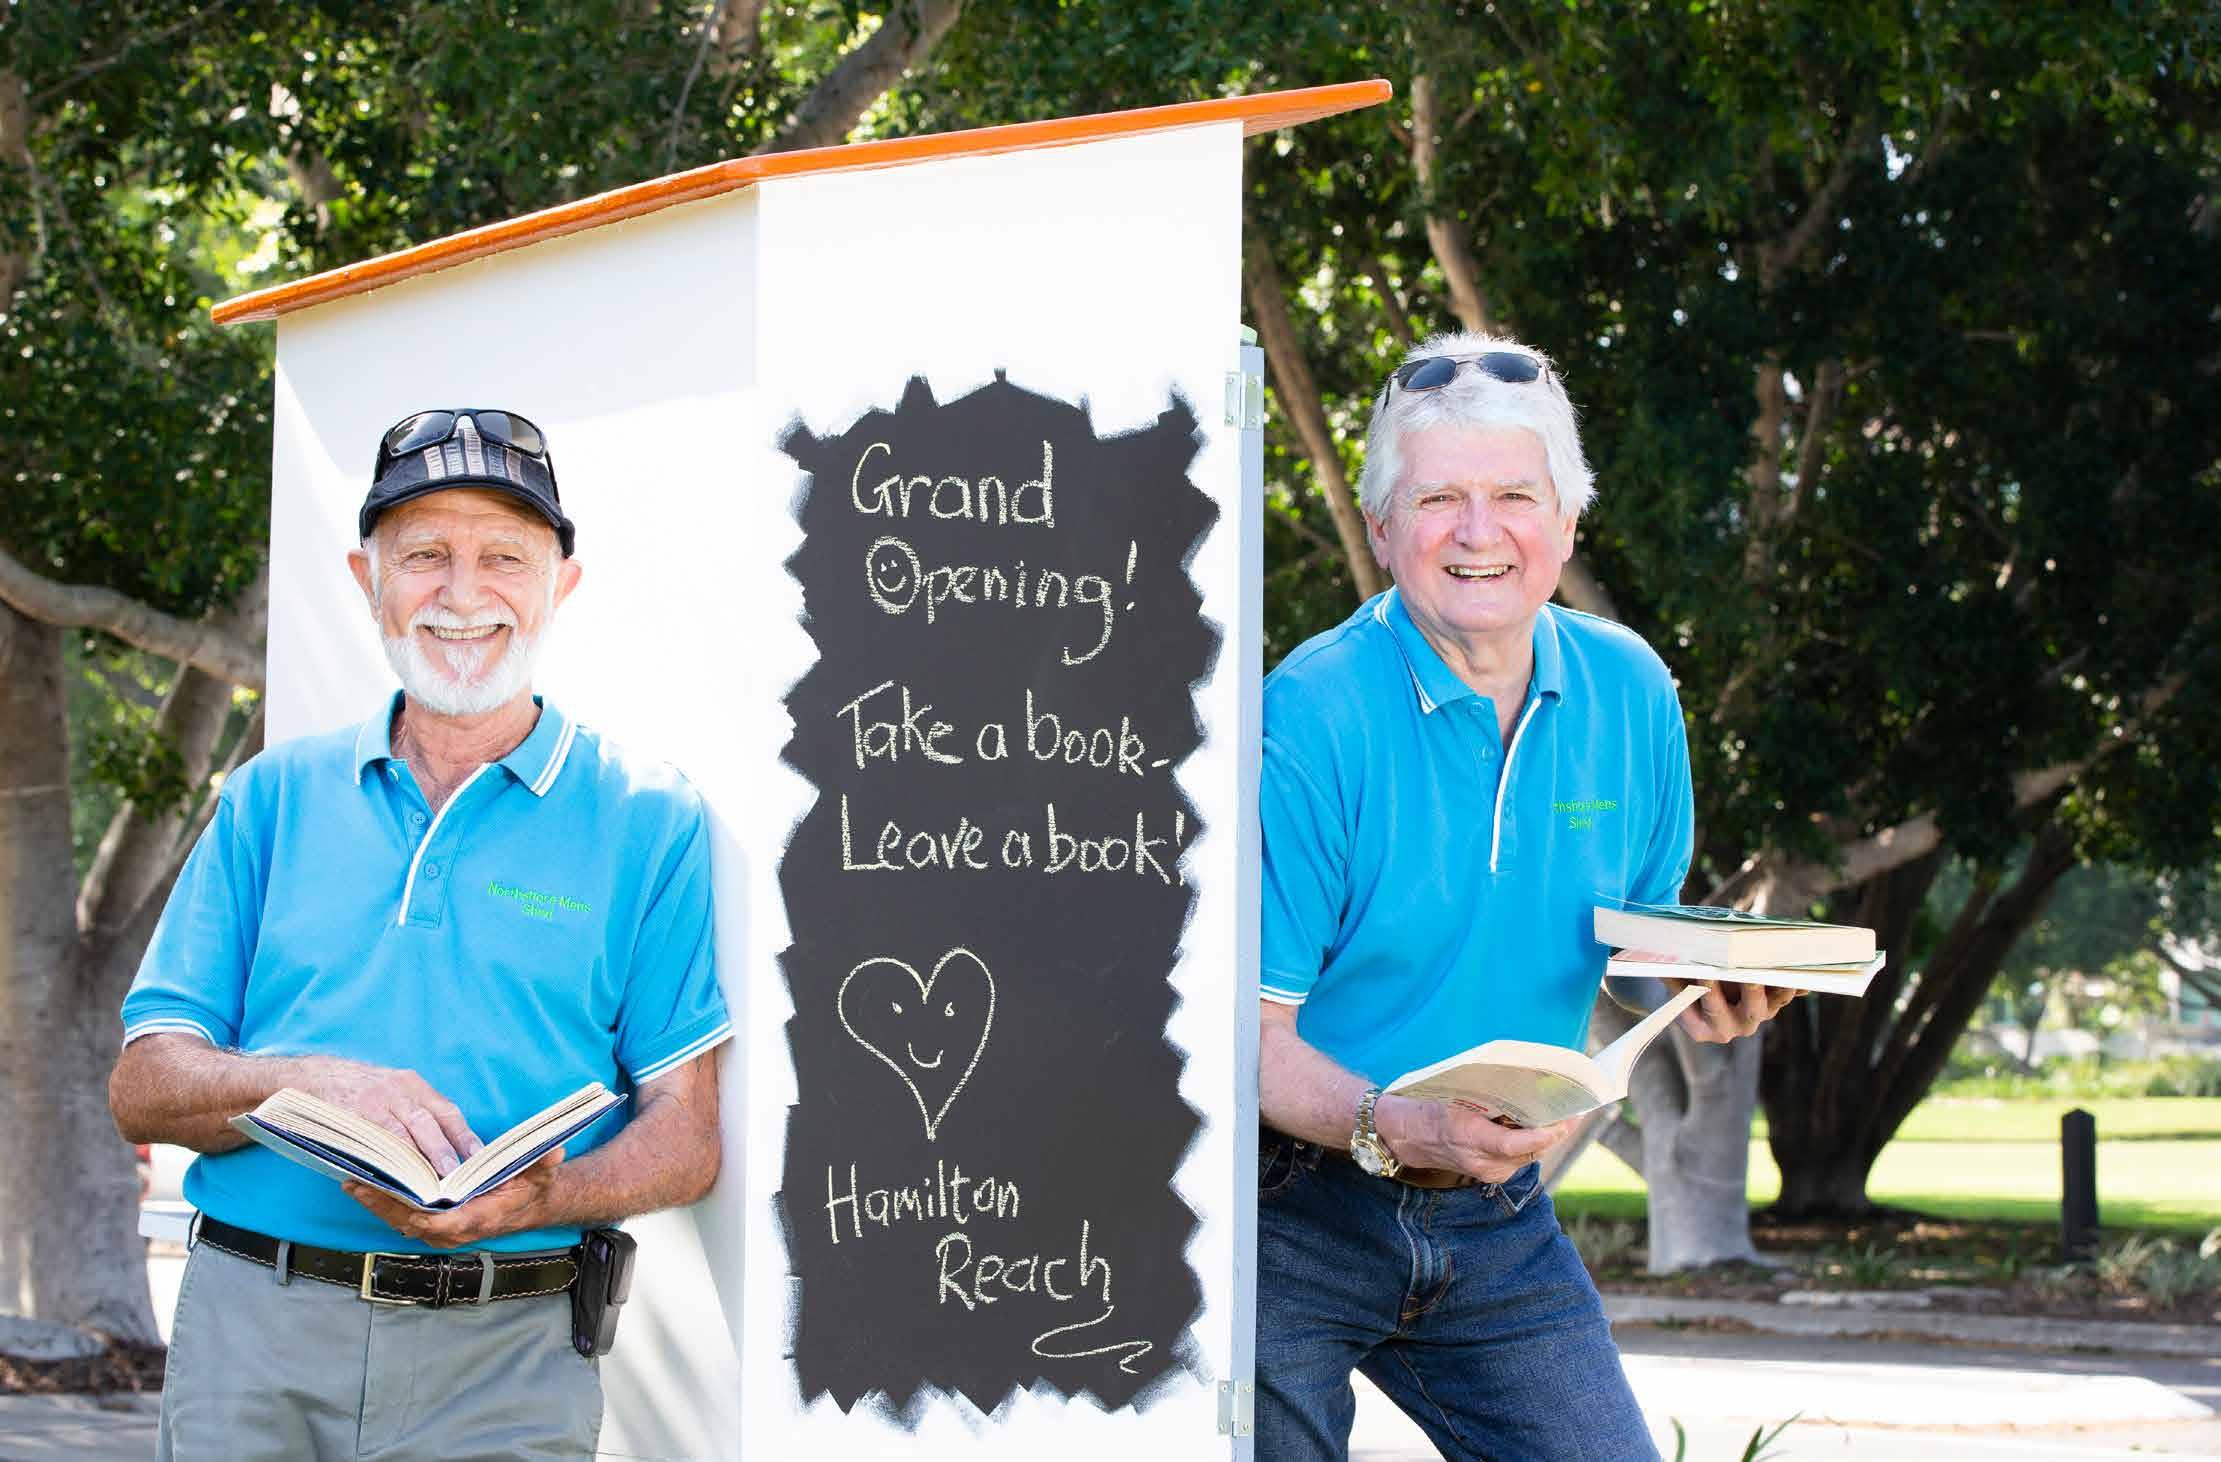 Grand
Opening!
Take a book-
Leave a book!
Hamilton
Reach
Northshore Mens
Shed
thshore Mens
Shed